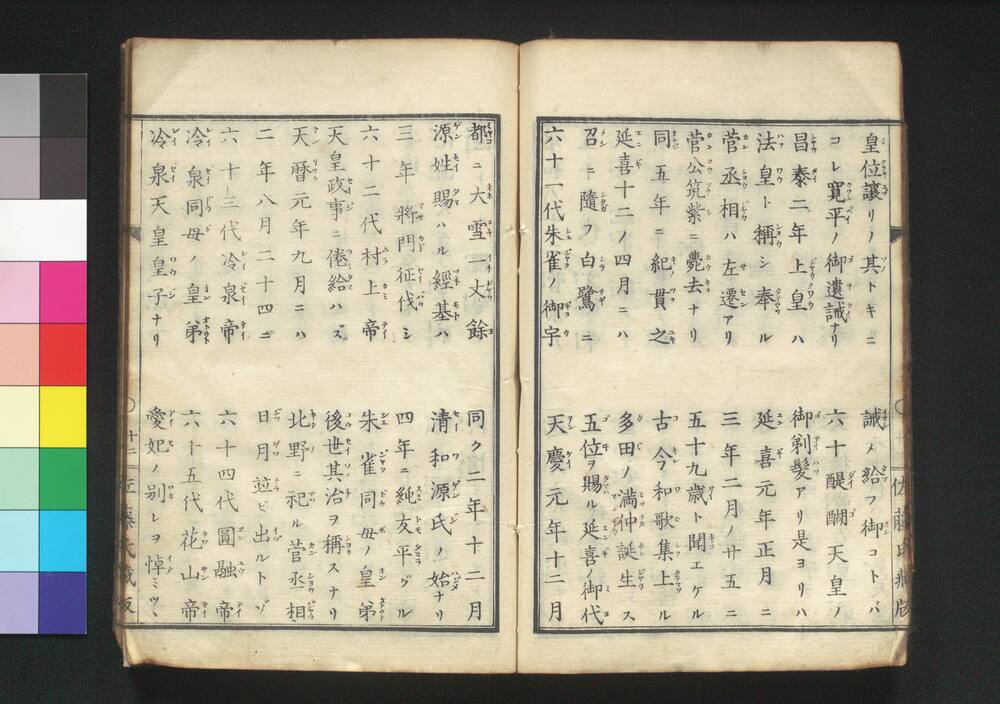 皇位譲リノ其トキニ
誡メ給フ御コトバ
コレ寛平ノ御遺誡ナリ
六十醍醐天皇ノ
昌泰二年上皇ハ
御剃髪アリ是ヨリハ
法皇ト稱シ奉ル
延喜元年正月ニ
菅丞相ハ左遷アリ
三年二月ノ廿五ニ
菅公筑紫ニ薨去ナリ
五十九歳ト聞エケル
同五年ニ紀貫之
古今和歌集上ル
延喜十二ノ四月ニハ
多田ノ満仲誕生ス
召ニ隨フ白鷺ニ
五位ヲ賜ル延喜ノ御代
六十一代朱雀ノ御宇
天慶元年十二月
都ニ大雪一丈餘
同ク二年十二月
源姓賜ハル經基ハ
清和源氏ノ始ナリ
三年將門征伐シ
四年ニ純友平ゲル
六十二代村上帝
朱雀同母ノ皇弟
天皇政事ニ倦給ハズ
後世其治ヲ稱スナリ
天暦元年九月ニハ
北野ニ祀ル菅丞相
二年八月二十四ニ
日月竝ビ出ルトゾ
六十三代冷泉帝
六十四代圓融帝
冷泉同母ノ皇弟
六十五代花山帝
冷泉天皇皇子ナリ
愛妃ノ別レヲ悼ミツヽ